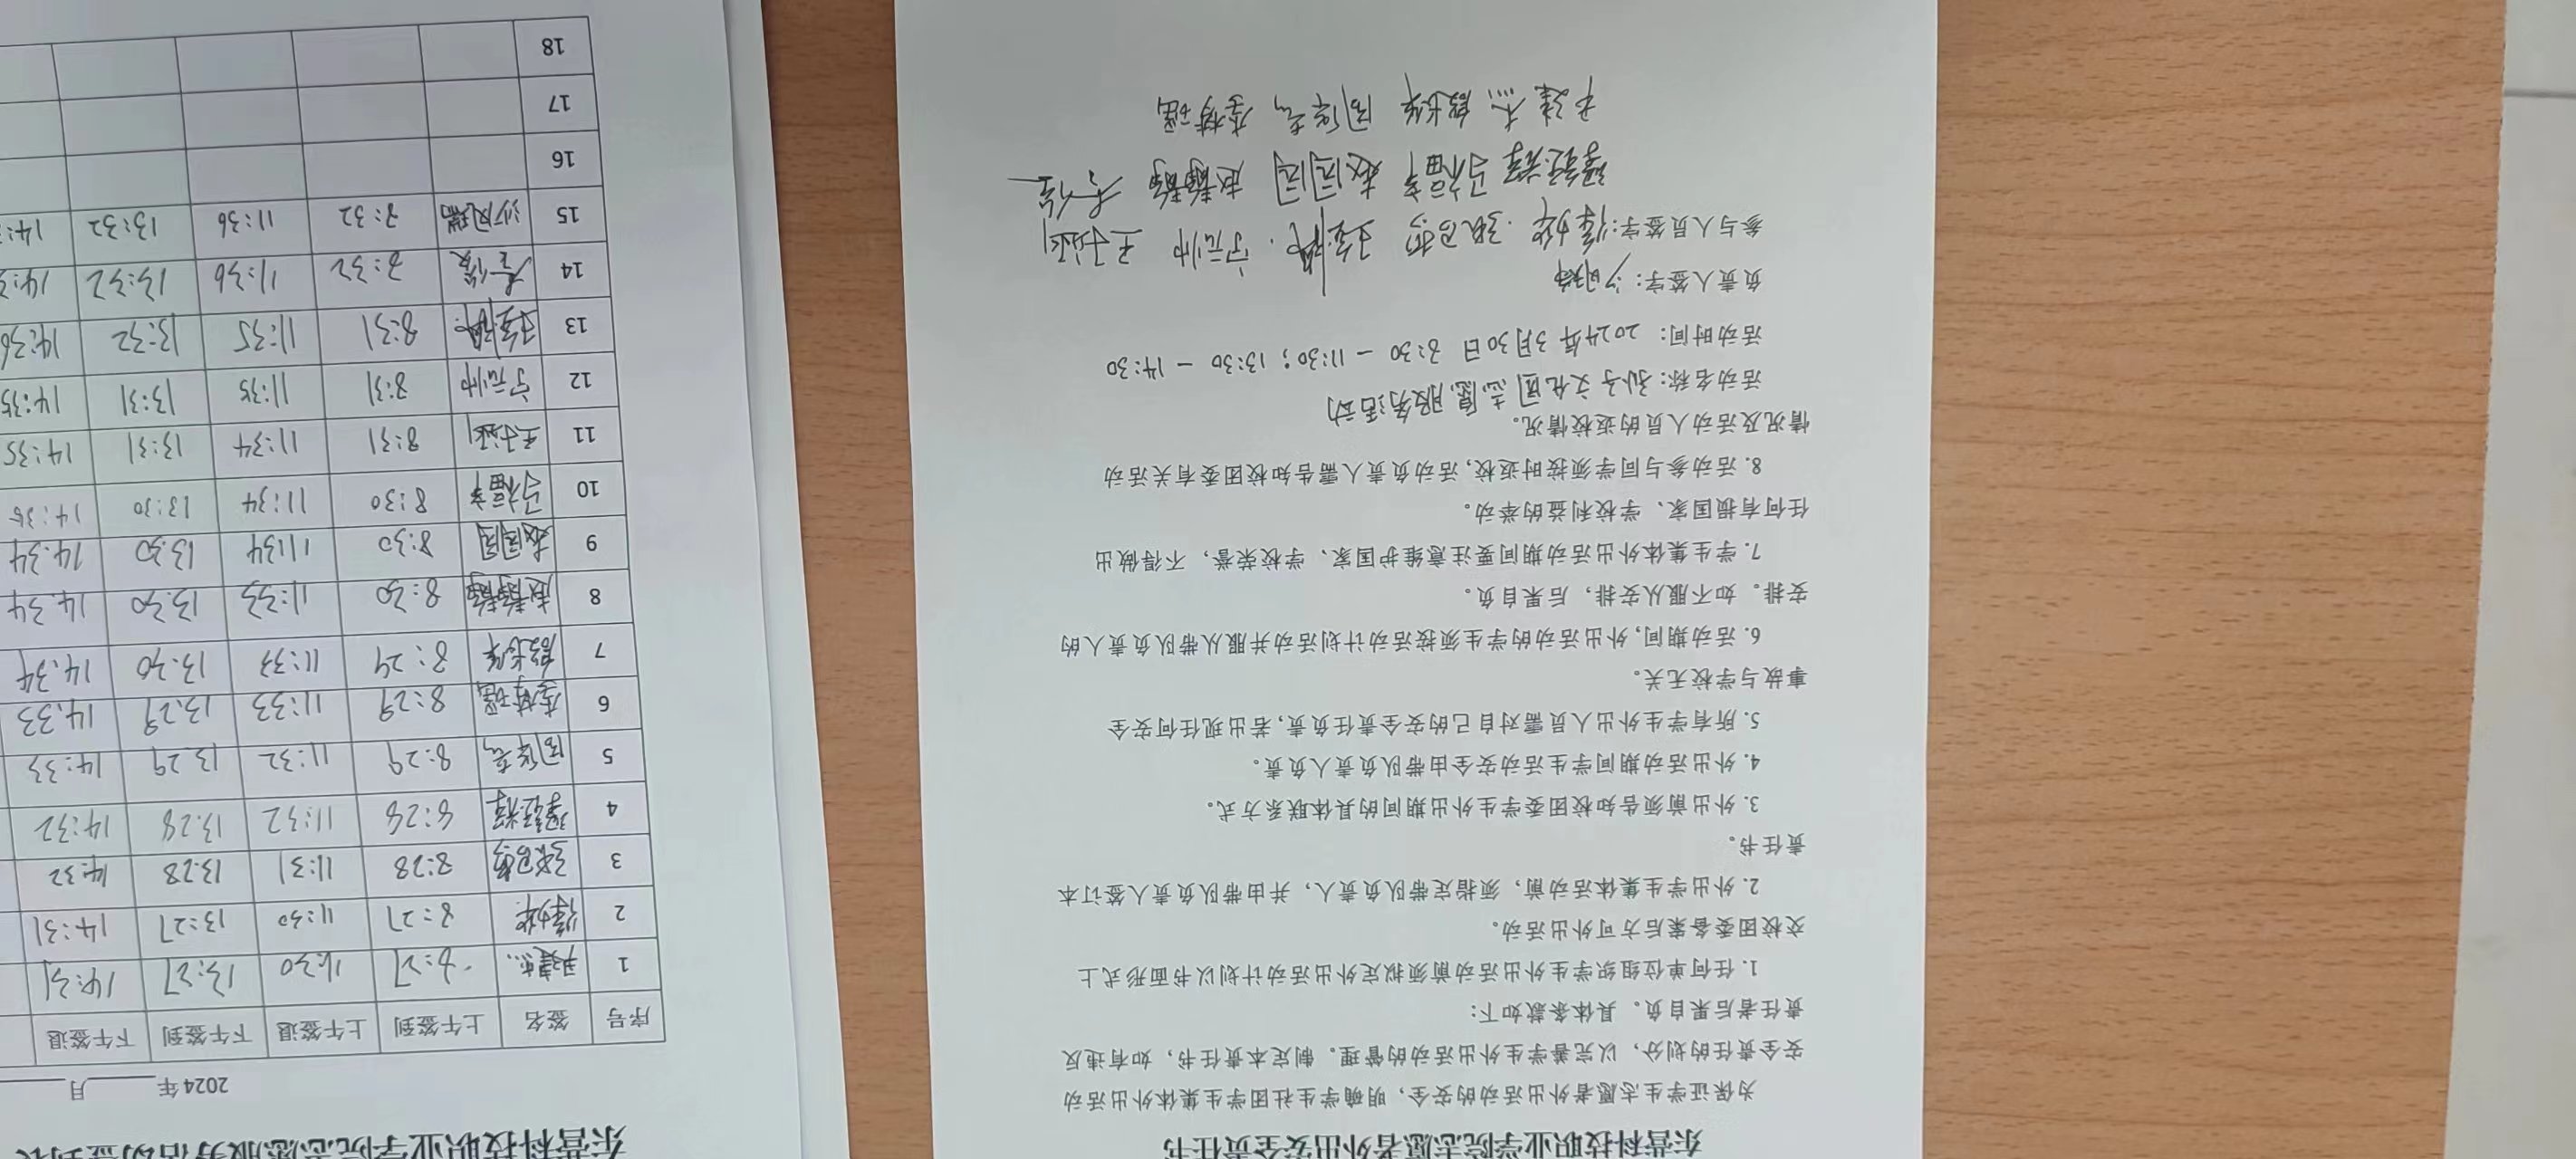 东营科技职业学院志愿者外出安全责任书
为保证学生志愿者外出活动的安全，明确学生社团学生集体外出活动
安全责任的划分，以完善学生外出活动的管理。制定本责任书，如有违反
责任者后果自负。具体条款如下：
1. 任何单位组织学生外出活动前须拟定外出活动计划以书面形式上
交校团委备案后方可外出活动。
2. 外出学生集体活动前，须指定带队负责人，并由带队负责人签订本
责任书。
3. 外出前须告知校团委学生外出期间的具体联系方式。
4. 外出活动期间学生活动安全由带队负责人负责。
5. 所有学生外出人员需对自己的安全责任负责，若出现任何安全
事故与学校无关。
6. 活动期间，外出活动的学生须按活动计划活动并服从带队负责人的
安排。如不服从安排，后果自负。
7. 学生集体外出活动期间要注意维护国家、学校荣誉，不得做出
任何有损国家、学校利益的举动。
8. 活动参与同学须按时返校，活动负责人需告知校团委有关活动
情况及活动人员的返校情况。
活动名称：孙子文化园志愿服务活动
活动时间：2024年3月30日 8:30 - 11:30；13:30 - 14:30
负责人签字：
参与人员签字：
赵园园 赵静静
东营科技职业学院志愿服务活动签到表
2024年 月
序号 签名 上午签到 上午签退 下午签到 下午签退
1 8:27 11:30 13:27 14:31
2 8:27 11:30 13:27 14:31
3 8:28 11:31 13:28 14:32
4 8:28 11:32 13:28 14:32
5 8:29 11:32 13:29 14:33
6 8:29 11:33 13:29 14:33
7 8:29 11:33 13:30 14:34
8 赵静静 8:30 11:33 13:30 14:34
9 赵园园 8:30 11:34 13:30 14:34
10 8:30 11:34 13:30 14:35
11 8:31 11:34 13:31 14:35
12 8:31 11:35 13:31 14:35
13 8:31 11:35 13:32 14:36
14 8:32 11:36 13:32
15 8:32 11:36 13:32
16
17
18